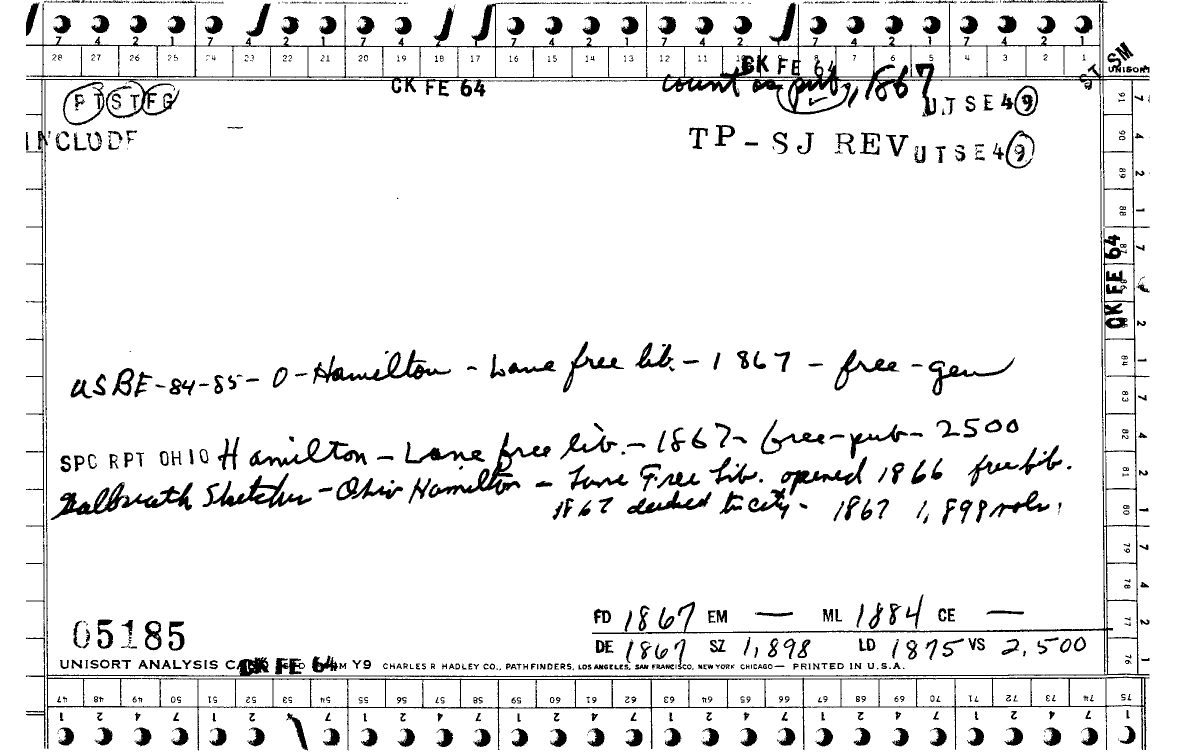 7 4 2 1 7 4 2 1 7 4 2 1 7 4 2 1 7 4 2 1 7 4 2 1 7 4 2 1
28 27 26 25 24 23 22 21 20 19 18 17 16 15 14 13 12 11 10 9 8 7 6 5 4 3 2 1 UNISORT
ST SM
CK FE 64
CK FE 64
count as pub, 1867
PT ST FG
UTSE4 9
INCLUDE
TP-SJ REV UTSE4 9
CK FE 64
USBE-84-85- O-Hamilton - Lane free lib. - 1867 - free-gen
SPC RPT OHIO Hamilton - Lane free lib. - 1867 - free-pub - 2500
Galbreath Sketches - Ohio Hamilton - Lane Free Lib. opened 1866 free lib.
1867 deeded to city - 1867 1,898 vols.
FD 1867 EM — ML 1884 CE —
05185
DE 1867 SZ 1,898 LD 1875 VS 2,500
UNISORT ANALYSIS CK FE 64 Y9 CHARLES R HADLEY CO., PATHFINDERS, LOS ANGELES, SAN FRANCISCO, NEW YORK CHICAGO— PRINTED IN U.S.A.
91 90 89 88 87 86 85 84 83 82 81 80 79 78 77 76
7 4 2 1 7 4 2 1 7 4 2 1 7 4 2 1
47 48 49 50 51 52 53 54 55 56 57 58 59 60 61 62 63 64 65 66 67 68 69 70 71 72 73 74 75
1 2 4 7 1 2 4 7 1 2 4 7 1 2 4 7 1 2 4 7 1 2 4 7 1 2 4 7 1